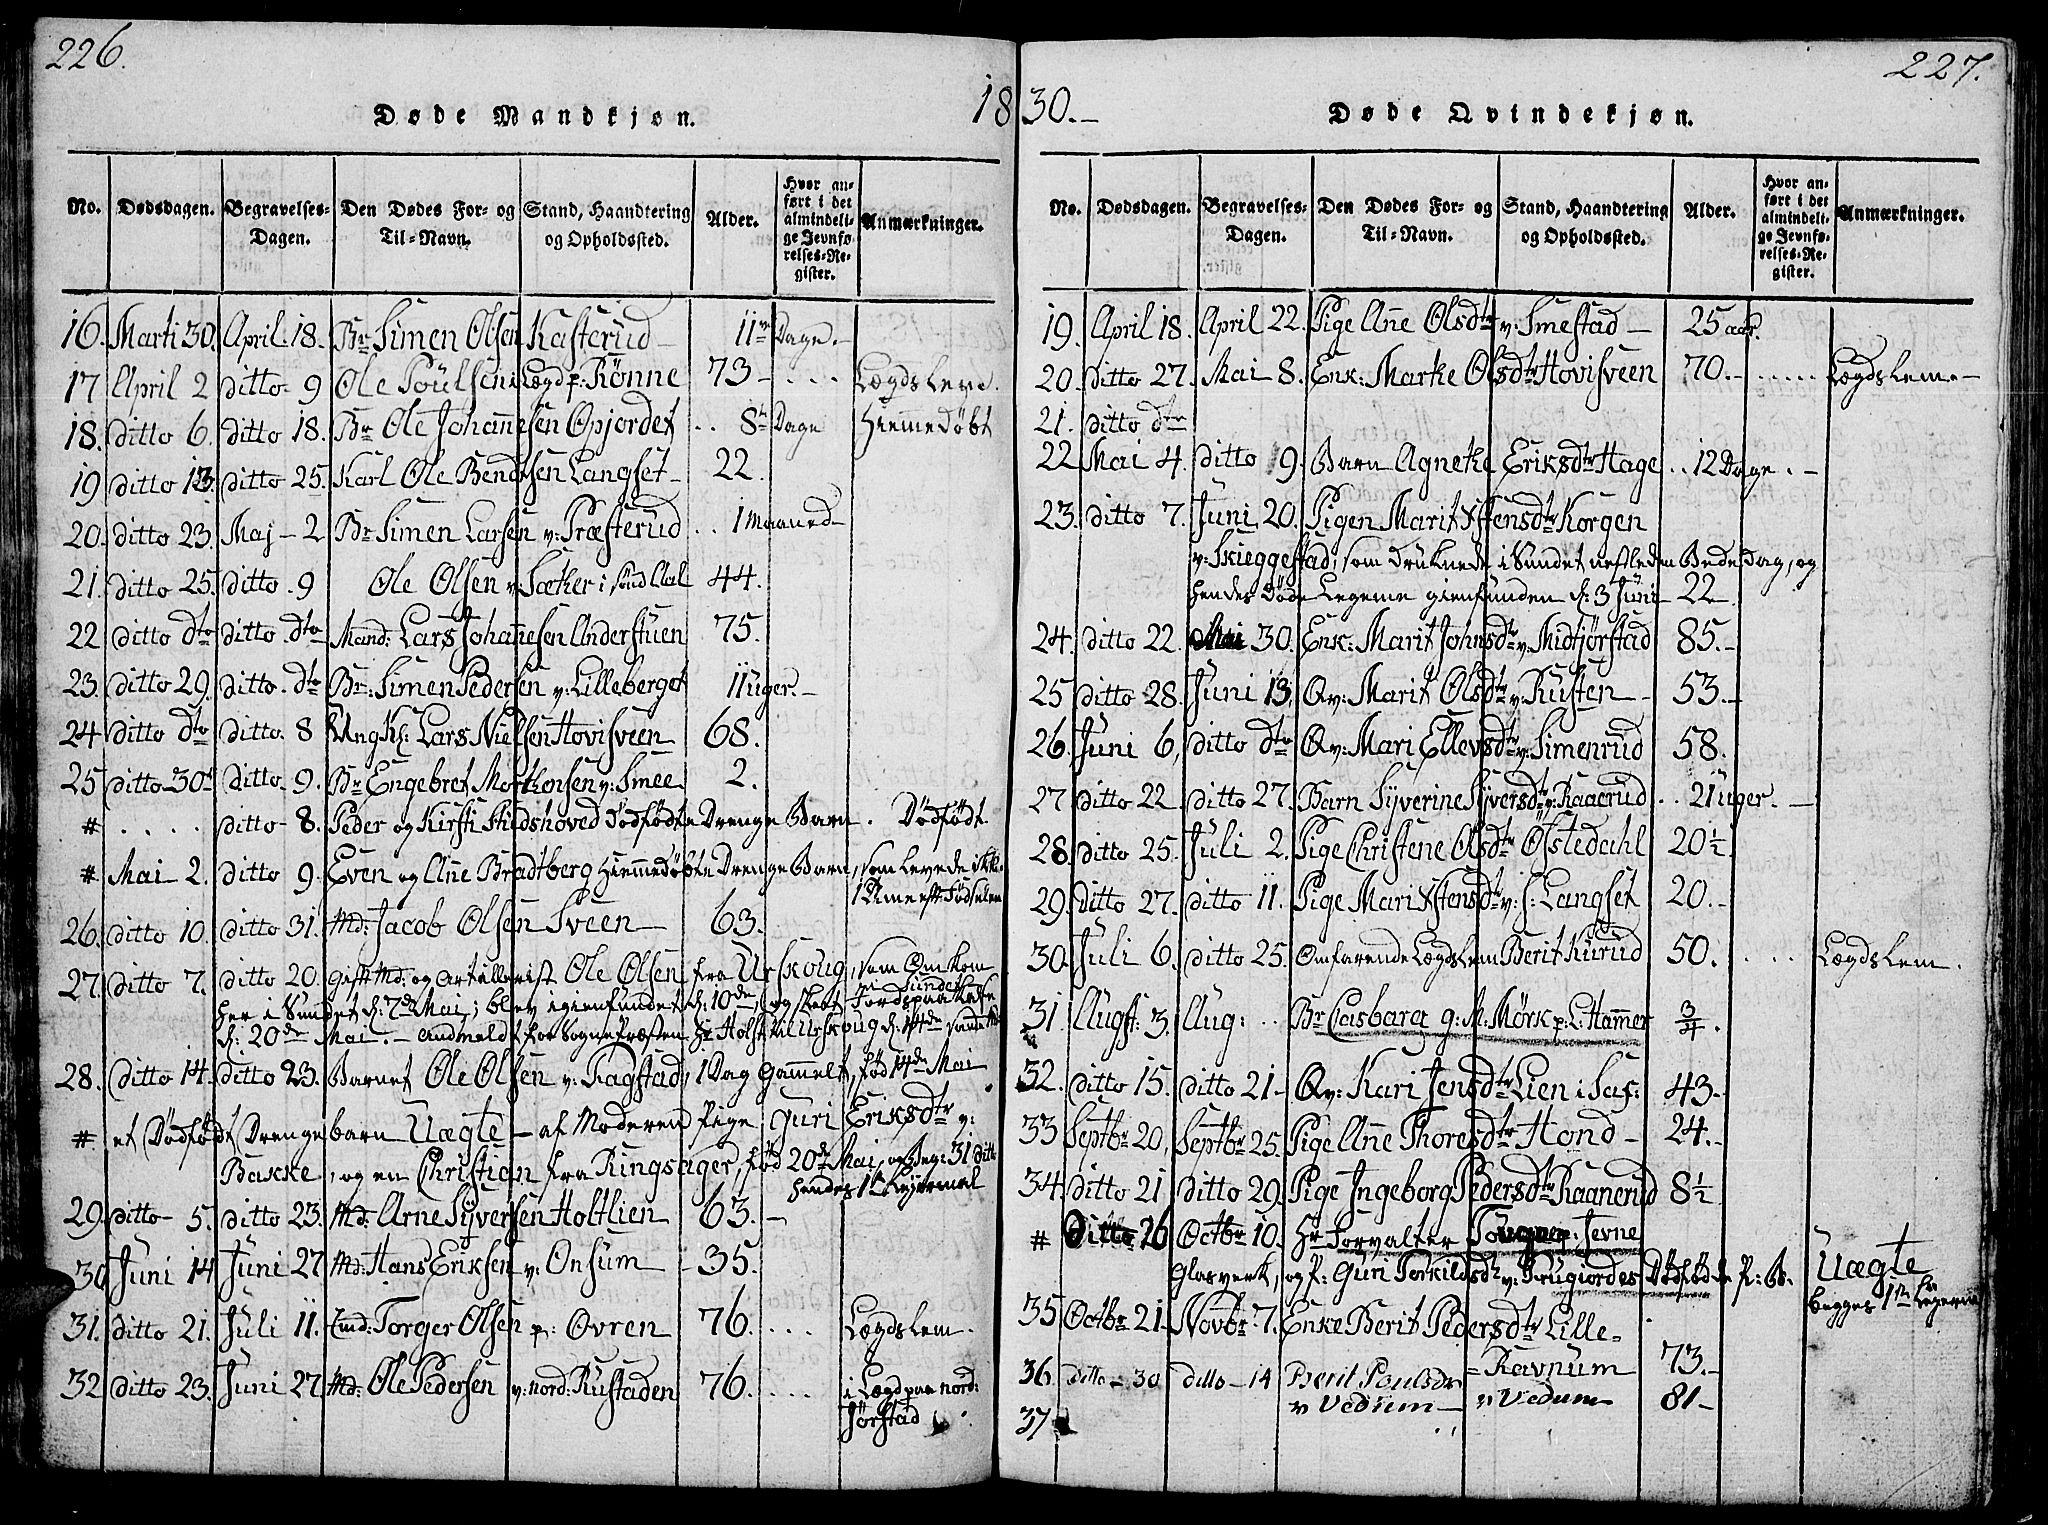 226.
1830.
Døde Mandkjøn.
No. Dødsdagen. Begravelses-Dagen. Den Dødes For- og Til-Navn. Stand, Haandtering og Opholdssted. Alder. Hvor anført i det almindelige Jevnførelses-Register. Anmærkninger.
16. Marti 30. April. 18. Br Simen Olsen Kasterud 11ve Dage.
17 April 2 ditto 9 Ole Poulsen i Lægd p: Rönne 73 Lægdsleve.
18. ditto 6. ditto 18. Br Ole Johannesen Opjordet 8te Dage Hiemmedøbt
19 ditto 13. ditto 25. Karl Ole Bendtsen Langset 22.
20. ditto 23. Maj 2 Br Simen Larsen v: Præsterud 1 Maaned
21. ditto 25. ditto 9 Ole Olsen v Sæther i sönd Aal 44.
22 ditto dto ditto dto Mand: Lars Johannesen Anderstuen 75.
23. ditto 29. ditto dto Br: Simen Pedersen v: Lilleberget 11 uger.
24 ditto dto ditto 8 Ung K: Lars Nielsen Hovisveen 68.
25 ditto 30 ditto 9. Br Engebret Morthensen v: Smee 2.
# ditto 8. Peder og Kirsti Stedshoved dødfødte Drenge Barn. Dødfødt
# Mai 2. ditto 9. Even og Anne Bradtberg Hiemmedøbte Drenge Barn, som levede ikke
1 Time efter Fødselen
26. ditto 10. ditto 31. Md: Jacob Olsen Sveen 63.
27. ditto 7. ditto 20. Gift Md: og Artillerist Ole Olsen fra Urskoug, som Omkom
her i Sundet d: 7de Mai; blev igienfundet d: 10de, og skeet Jordspaakastelse
d: 20de Mai. Andmeldt for Sognepræsten Hr Holst til Urskoug d: 14de
28. ditto 14. ditto 23. Barnet Ole Olsen v: Ragstad, 1 Dag Gammelt, fød 14de Mai
# et Dødfødt Drengebarn Uægte af Moderen Pige Guri Eriksdtr v:
Bakke, og en Christian fra Ringsager, fød 20de Mai, og beg: 31 ditto
hendes 1ste Leyermal
29. ditto 5. ditto 23. Md: Arne Syversen Holtlien 63.
30 Juni 14 Juni 27 Md: Hans Eriksen v: Onsum 35.
31. ditto 21. Juli 11. Emd: Torger Olsen p: Övren 76. Lægdslem.
32 ditto 23. Juni 27 Md: Ole Pedersen v: nord: Rustaden 76. i Lægd paa nord:
Jörstad
227.
Døde Qvindekjøn.
No. Dødsdagen. Begravelses-Dagen. Den Dødes For- og Til-Navn. Stand, Haandtering og Opholdssted. Alder. Hvor anført i det almindelige Jevnførelses-Register. Anmærkninger.
19. April 18. April 22. Pige Anne Olsdtr v: Smestad 25 aar.
20. ditto 27. Mai 8. Enk: Marthe Olsdtr Hovisveen 70. Lægdslem.
21. ditto dto
22 Mai 4. ditto 9. Barn Agnethe Eriksdtr Hage 12 Dage.
23. ditto 7. Juni 20. Pigen Marit Stensdtr Korgen
v: Skieggestad, som druknede i Sundet Bededag, og
hendes døde Legeme gienfunden d: 3 Juni 22
24. ditto 22. Mai 30. Enk: Marit Johnsdtr v: Midtjörstad 85.
25 ditto 28. Juni 13. Qv: Marit Olsdtr v: Rusten 53.
26. Juni 6. ditto dto Qv: Mari Ellevsdtr v: Simenrud 58.
27 ditto 22 ditto 27. Barn Syverine Syversdtr v: Raaerud 21 uger.
28. ditto 25. Juli 2. Pige Christene Olsdtr Östedahl 20½
29. ditto 27. ditto 11. Pige Mari Stensdtr v: s: Langset 20.
30. Juli 6. ditto 25. Omfarende Lægdslem Berit Kurud 50. Lægdslem.
31. Augst: 3. Aug: Br Casbara g: M: Mörk p: L: Hammer ¾.
32. ditto 15. ditto 21 Qv: Kari Jensdtr Lien i Saf: 43.
33 Septbr 20, Septbr 25. Pige Anne Thoresdtr Hond 24.
34. ditto 21 ditto 29. Pige Ingeborg Pedersdtr Kaanerud 8½
# ditto 26 Octbr 10. Hr Forvalter p: Jevne
Glasverk, og P: Guri Torkildsdtr v: Dødfødde P: B. Uægte
begges 1ste
35 Octbr 21. Novbr 7. Enke Berit Pedersdtr Lille-
Ravnum 73.
36. ditto 30 ditto 14 Berit Paulsdr
v Vedum v Vedum 81
37